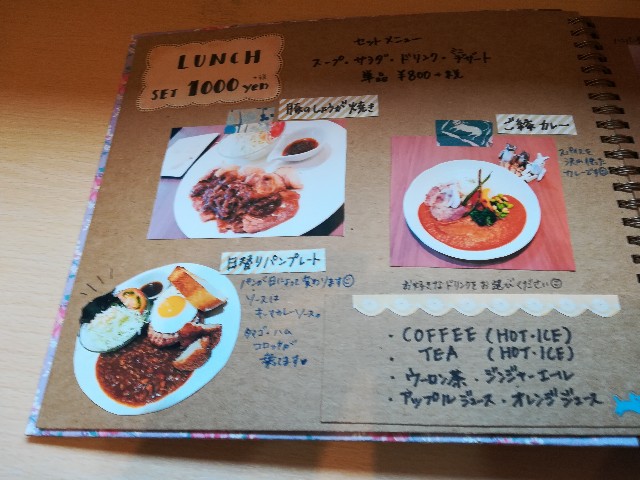 LUNCH
SET 1000 yen
セットメニュー
スープ・サラダ・ドリンク・デザート
単品 ¥800
豚のしょうが焼き
カレー
カレーです
日替りパンプレート
パンが日によって変わります
ソースは
カレーソース。
タマゴ・ハム
コロッケが
お好きなドリンクをお選びください
・COFFEE (HOT・ICE)
・TEA (HOT・ICE)
・ウーロン茶・ジンジャーエール
・アップルジュース・オレンジジュース